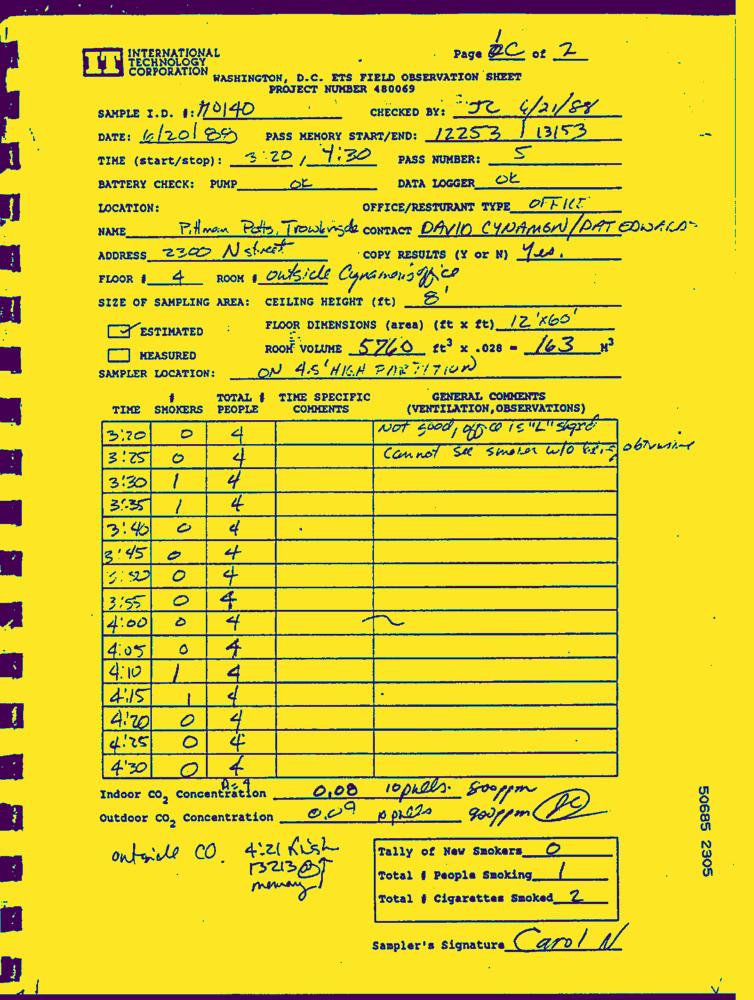 IT INTERNATIONAL
TECHNOLOGY
CORPORATION
Page 1 of 2
WASHINGTON, D.C. ETS FIELD OBSERVATION SHEET
PROJECT NUMBER 480069
SAMPLE I.D. #: CHECKED BY: JC 6/21/88
DATE: 6/20/88 PASS MEMORY START/END: 12253 / 13153
TIME (start/stop): 3:20 / 4:30 PASS NUMBER: 5
BATTERY CHECK: PUMP OK DATA LOGGER OK
LOCATION: OFFICE/RESTURANT TYPE OFFICE
NAME Pittman Potts, Trowbridge CONTACT DAVID CYNAMON/PAT EDWARDS
ADDRESS 2300 N street COPY RESULTS (Y or N) Yes.
FLOOR # 4 ROOM # outside Cynamon's office
SIZE OF SAMPLING AREA: CEILING HEIGHT (ft) 8'
ESTIMATED FLOOR DIMENSIONS (area) (ft x ft) 12'x60'
MEASURED ROOM VOLUME 5760 ft³ x .028 = 163 M³
SAMPLER LOCATION: ON 4.5' HIGH PARTITION
TIME # SMOKERS TOTAL # PEOPLE TIME SPECIFIC COMMENTS GENERAL COMMENTS (VENTILATION,OBSERVATIONS)
3:20 0 4 Not good, office is "L" shaped
3:25 0 4 Cannot see smoker w/o being obtrusive
3:30 1 4
3:35 1 4
3:40 0 4
3:45 0 4
3:50 0 4
3:55 0 4
4:00 0 4
4:05 0 4
4:10 1 4
4:15 1 4
4:20 0 4
4:25 0 4
4:30 0 4
A=4
Indoor CO₂ Concentration 0.08 10 pulls. 800ppm
Outdoor CO₂ Concentration 0.09 10 pulls 900ppm JC
outside CO. 4:21 finish
13213
memory
Tally of New Smokers 0
Total # People Smoking 1
Total # Cigarettes Smoked 2
Sampler's Signature Carol N
50685 2305